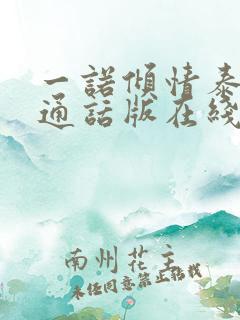 一诺倾情泰
通话版在线
南州花主
未经同意禁止转载